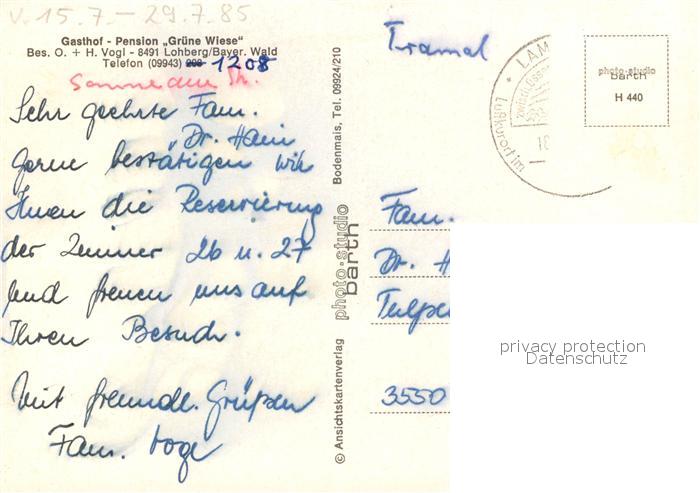 v. 15.7. – 29.7.85
Gasthof - Pension „Grüne Wiese"
Bes. O. + H. Vogl - 8491 Lohberg/Bayer. Wald
Telefon (09943) 208 1208
Sehr geehrte Fam.
Dr. Hain
gerne bestätigen wir
Ihnen die Reservierung
der Zimmer 26 u. 27
und freuen uns auf
Ihren Besuch.
Mit freundl. Grüßen
Fam. Vogl
© Ansichtskartenverlag photo-studio barth Bodenmais, Tel. 09924/210
Tramal
LAM
Luftkurort im
photo-studio
barth
H 440
Fam.
Dr. H
Tulpe
3550
privacy protection
Datenschutz